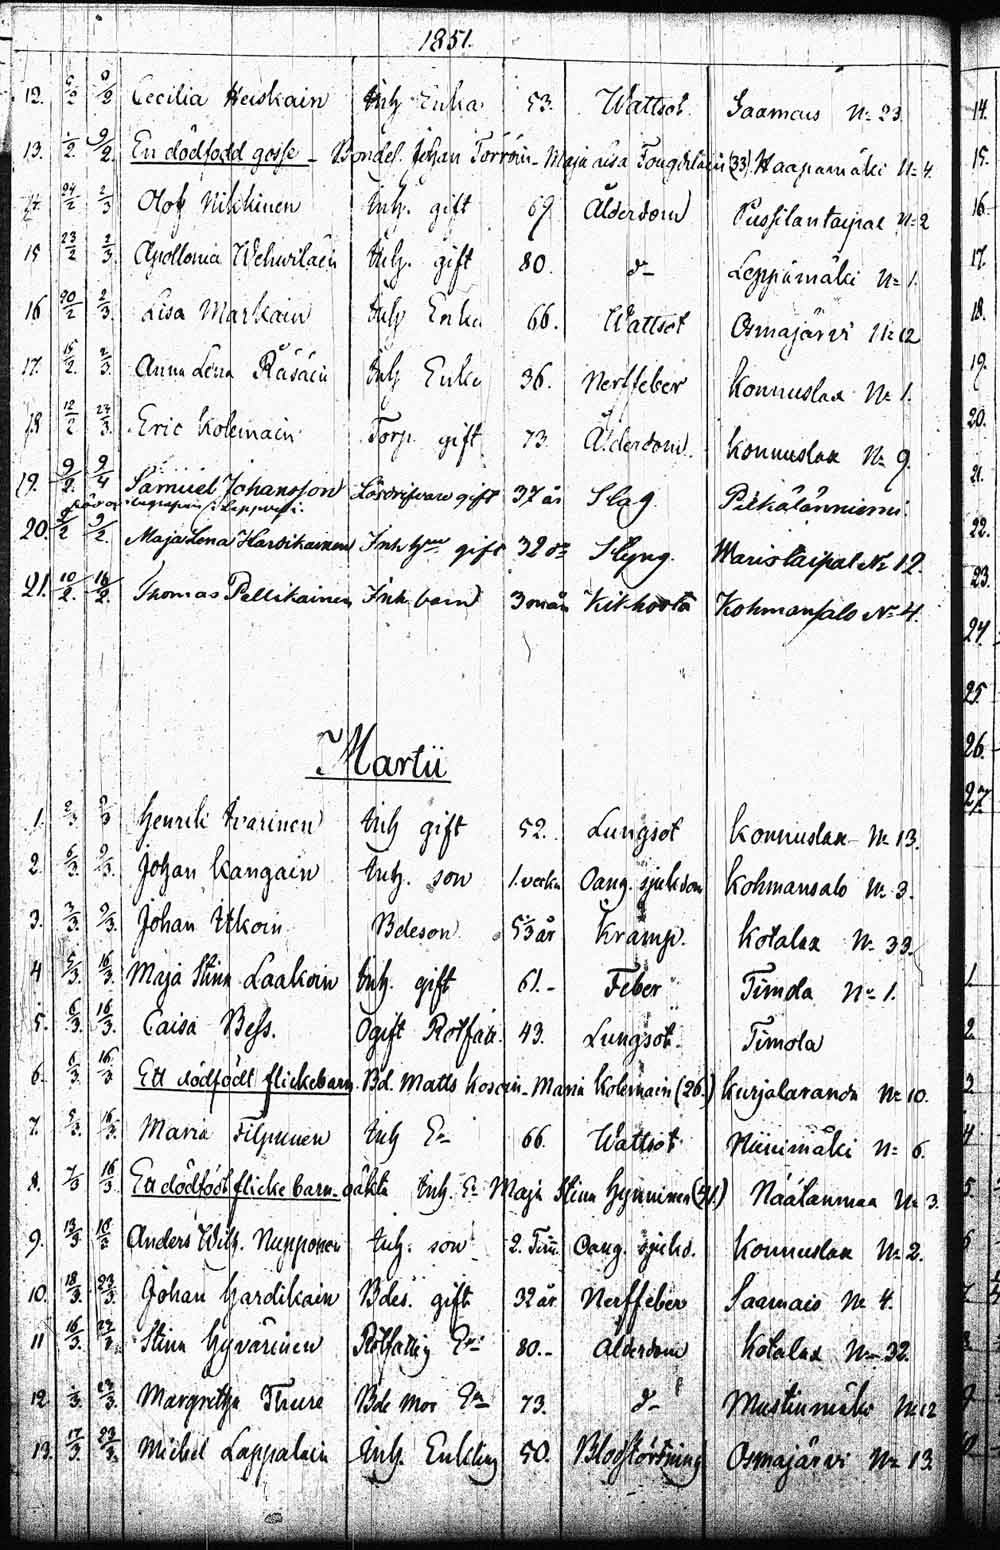 1851.
12. 5/2 9/2 Cecilia Heiskain Inh. Enka 53. Wattsot. Saamais N=23.
13. 9/2. En dödfödd gosse - Bondes. Johan Torröin - Maja Lisa (33) Haapamäki N=4.
24/2 2/3 Olof Nikkinen Inh. gift 69 Ålderdom Pussilantaipal N=2
15 23/2 2/3. Apollonia Wehvilain Inh. gift 80. d- Leppämäki N=1.
16 20/2 2/3. Lisa Markain Inh Enka 66. Wattsot Osmajärvi N=12
17. 15/2. 2/3. Anna Lena Räsäin Inh Enka 36. Nerffeber Konnuslax N=1.
18 12/2 23/3. Eric Kolemain Torp. gift 73. Ålderdom. Konnuslax N=9.
19. 9/2. 9/4 Samuel Johansson Lösdrifvare gift 37 år Slag. Pitkälänniemi.
20. 9/2. Maja Lena Harsikainen Inh. gift 32 Slyng. Waristaipal N=12.
21. 10/2. 16/2. Thomas Pellikainen Inh. barn 3 mån Kikhosta Kohmansalo N=4.
Martii
1. 2/3. 2/3 Henrik Ivarinen Inh gift 52. Lungsot Konnuslax N=13.
2. 6/3. 9/3. Johan Kangain Inh. son 1. vecka Oang. sjukdom Kohmansalo N=3.
3. 3/3. 9/3. Johan Itkoin Bdeson. år Kramp. Kotalax N=33.
4 5/3. 16/3. Maja Stina Laakoin Inh. gift 61.- Feber Timola N=1.
5. 6/3. 16/3. Caisa Bess. Ogift Rotfatt. 43. Lungsot. Timola
6. 6/3. 16/3 Ett dödfödt flickebarn. Bd. Matts Kosoin - Maria Kolemain (26.) Kurjalaranda N=10.
7. 5/3. 16/3. Maria Filpunen Inh En 66. Wattsot Niinimäki N=6.
8. 7/3 16/3. Ett dödfödt flickebarn - oäkta Inh. En Maja Stina Hynninen Näätänmaa N=3.
9. 13/3 18/3 Anders Wilh. Nupponen Inh. son 2. Tim. Oang. sjukd. Konnuslax N=2.
10. 18/3. 23/3. Johan Hardikain Bdes. gift 32 år Nerffeber Saamais N=4.
11 16/3. 23/3 Stina Hyvärinen Rotfattig En 80.- Ålderdom Kotalax N=32.
12 23/3. Margretha Thure Bde mor En 73. d- Mustinmäki N=12
13. 17/3. 23/3. Michel Lappalain Inh. Enkling 50. Blodstörtning Osmajärvi N=13.
14.
15.
16.
17.
18.
19.
20.
21.
22.
23.
24.
25.
26.
27.
1.
2.